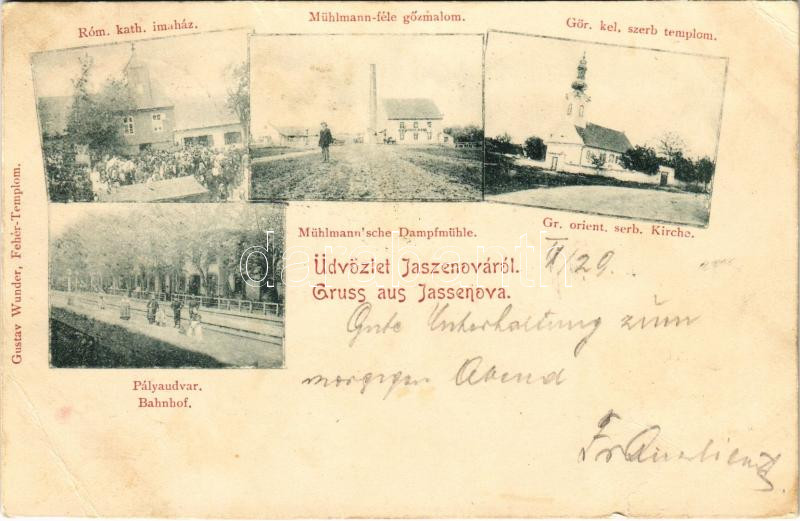 Róm. kath. imaház.
Mühlmann-féle gőzmalom.
Gör. kel. szerb templom.
Gustav Wunder, Fehér-Templom.
Mühlmann'sche Dampfmühle.
Gr. orient. serb. Kirche.
Üdvözlet Jaszenováról.
Gruss aus Jassenova.
II/29.
Gute Unterhaltung zum
morgigen Abend
Pályaudvar.
Bahnhof.